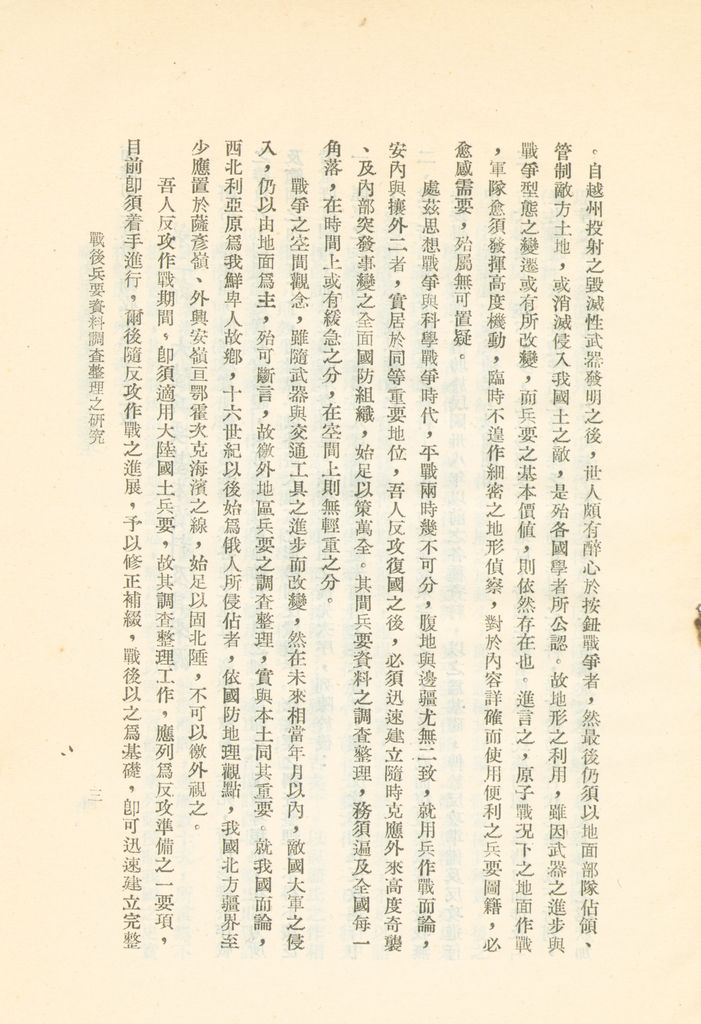 。自越州投射之毀滅性武器發明之後，世人頗有醉心於按鈕戰爭者，然最後仍須以地面部隊佔領、
管制敵方土地，或消滅侵入我國土之敵，是殆各國學者所公認。故地形之利用，雖因武器之進步與
戰爭型態之變遷或有所改變，而兵要之基本價值，則依然存在也。進言之，原子戰況下之地面作戰
，軍隊愈須發揮高度機動，臨時不遑作細密之地形偵察，對於內容詳確而使用便利之兵要圖籍，必
愈感需要，殆屬無可置疑。
處茲思想戰爭與科學戰爭時代，平戰兩時幾不可分，腹地與邊疆尤無二致，就用兵作戰而論，
安內與攘外二者，實居於同等重要地位，吾人反攻復國之後，必須迅速建立隨時克應外來高度奇襲
、及內部突發事變之全面國防組織，始足以策萬全。其間兵要資料之調查整理，務須遍及全國每一
角落，在時間上或有緩急之分，在空間上則無輕重之分。
戰爭之空間觀念，雖隨武器與交通工具之進步而改變，然在未來相當年月以內，敵國大軍之侵
入，仍以由地面爲主，殆可斷言，故徼外地區兵要之調查整理，實與本土同其重要。就我國而論，
西北利亞原爲我鮮卑人故鄉，十六世紀以後始爲俄人所侵佔者，依國防地理觀點，我國北方疆界至
少應置於薩彥嶺、外興安嶺亘鄂霍次克海濱之線，始足以固北陲，不可以徼外視之。
吾人反攻作戰期間，卽須適用大陸國土兵要，故其調查整理工作，應列爲反攻準備之一要項，
目前卽須着手進行，爾後隨反攻作戰之進展，予以修正補綴，戰後以之爲基礎，卽可迅速建立完整
戰後兵要資料調查整理之研究
三